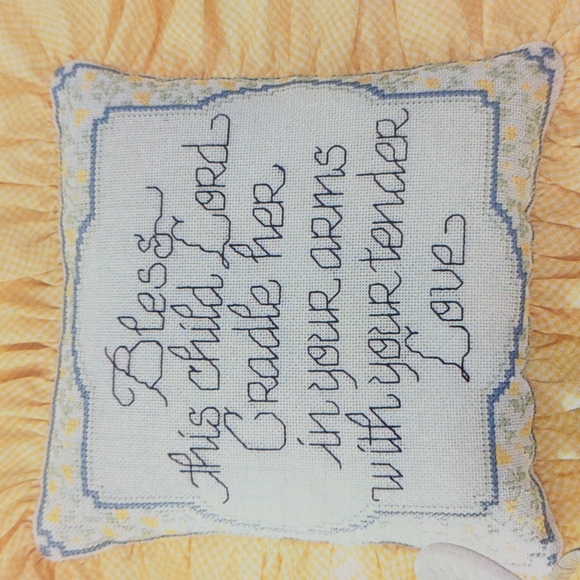 Bless
this child Lord
Cradle her
in your arms
with your tender
Love